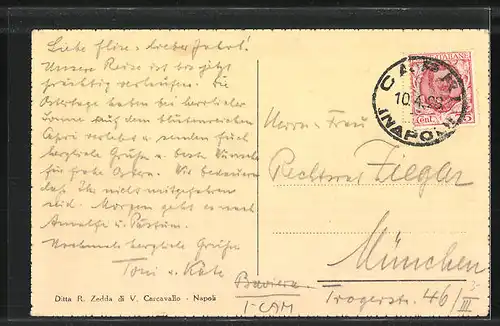 Liebe Eltern, lieber Jakob!
Unsere Reise ist bis jetzt
prächtig verlaufen. Die
Ostertage haben bei herrlicher
Sonne auf dem blütenreichen
Capri verlebt u. senden Euch
herzliche Grüße u. beste Wünsche
für frohe Ostern. Wir bedauern
daß Ihr nicht mitgefahren
seid. Morgen geht es nach
Amalfi u. Pästum.
Nochmals herzliche Grüße
Toni u. Käte
Ditta R. Zedda di V. Carcavallo - Napoli
CAPRI
(NAPOLI)
ITALIANE
Cent.
Herrn u. Frau
Ziegler
München
Baviera
Trogerstr. 46/III